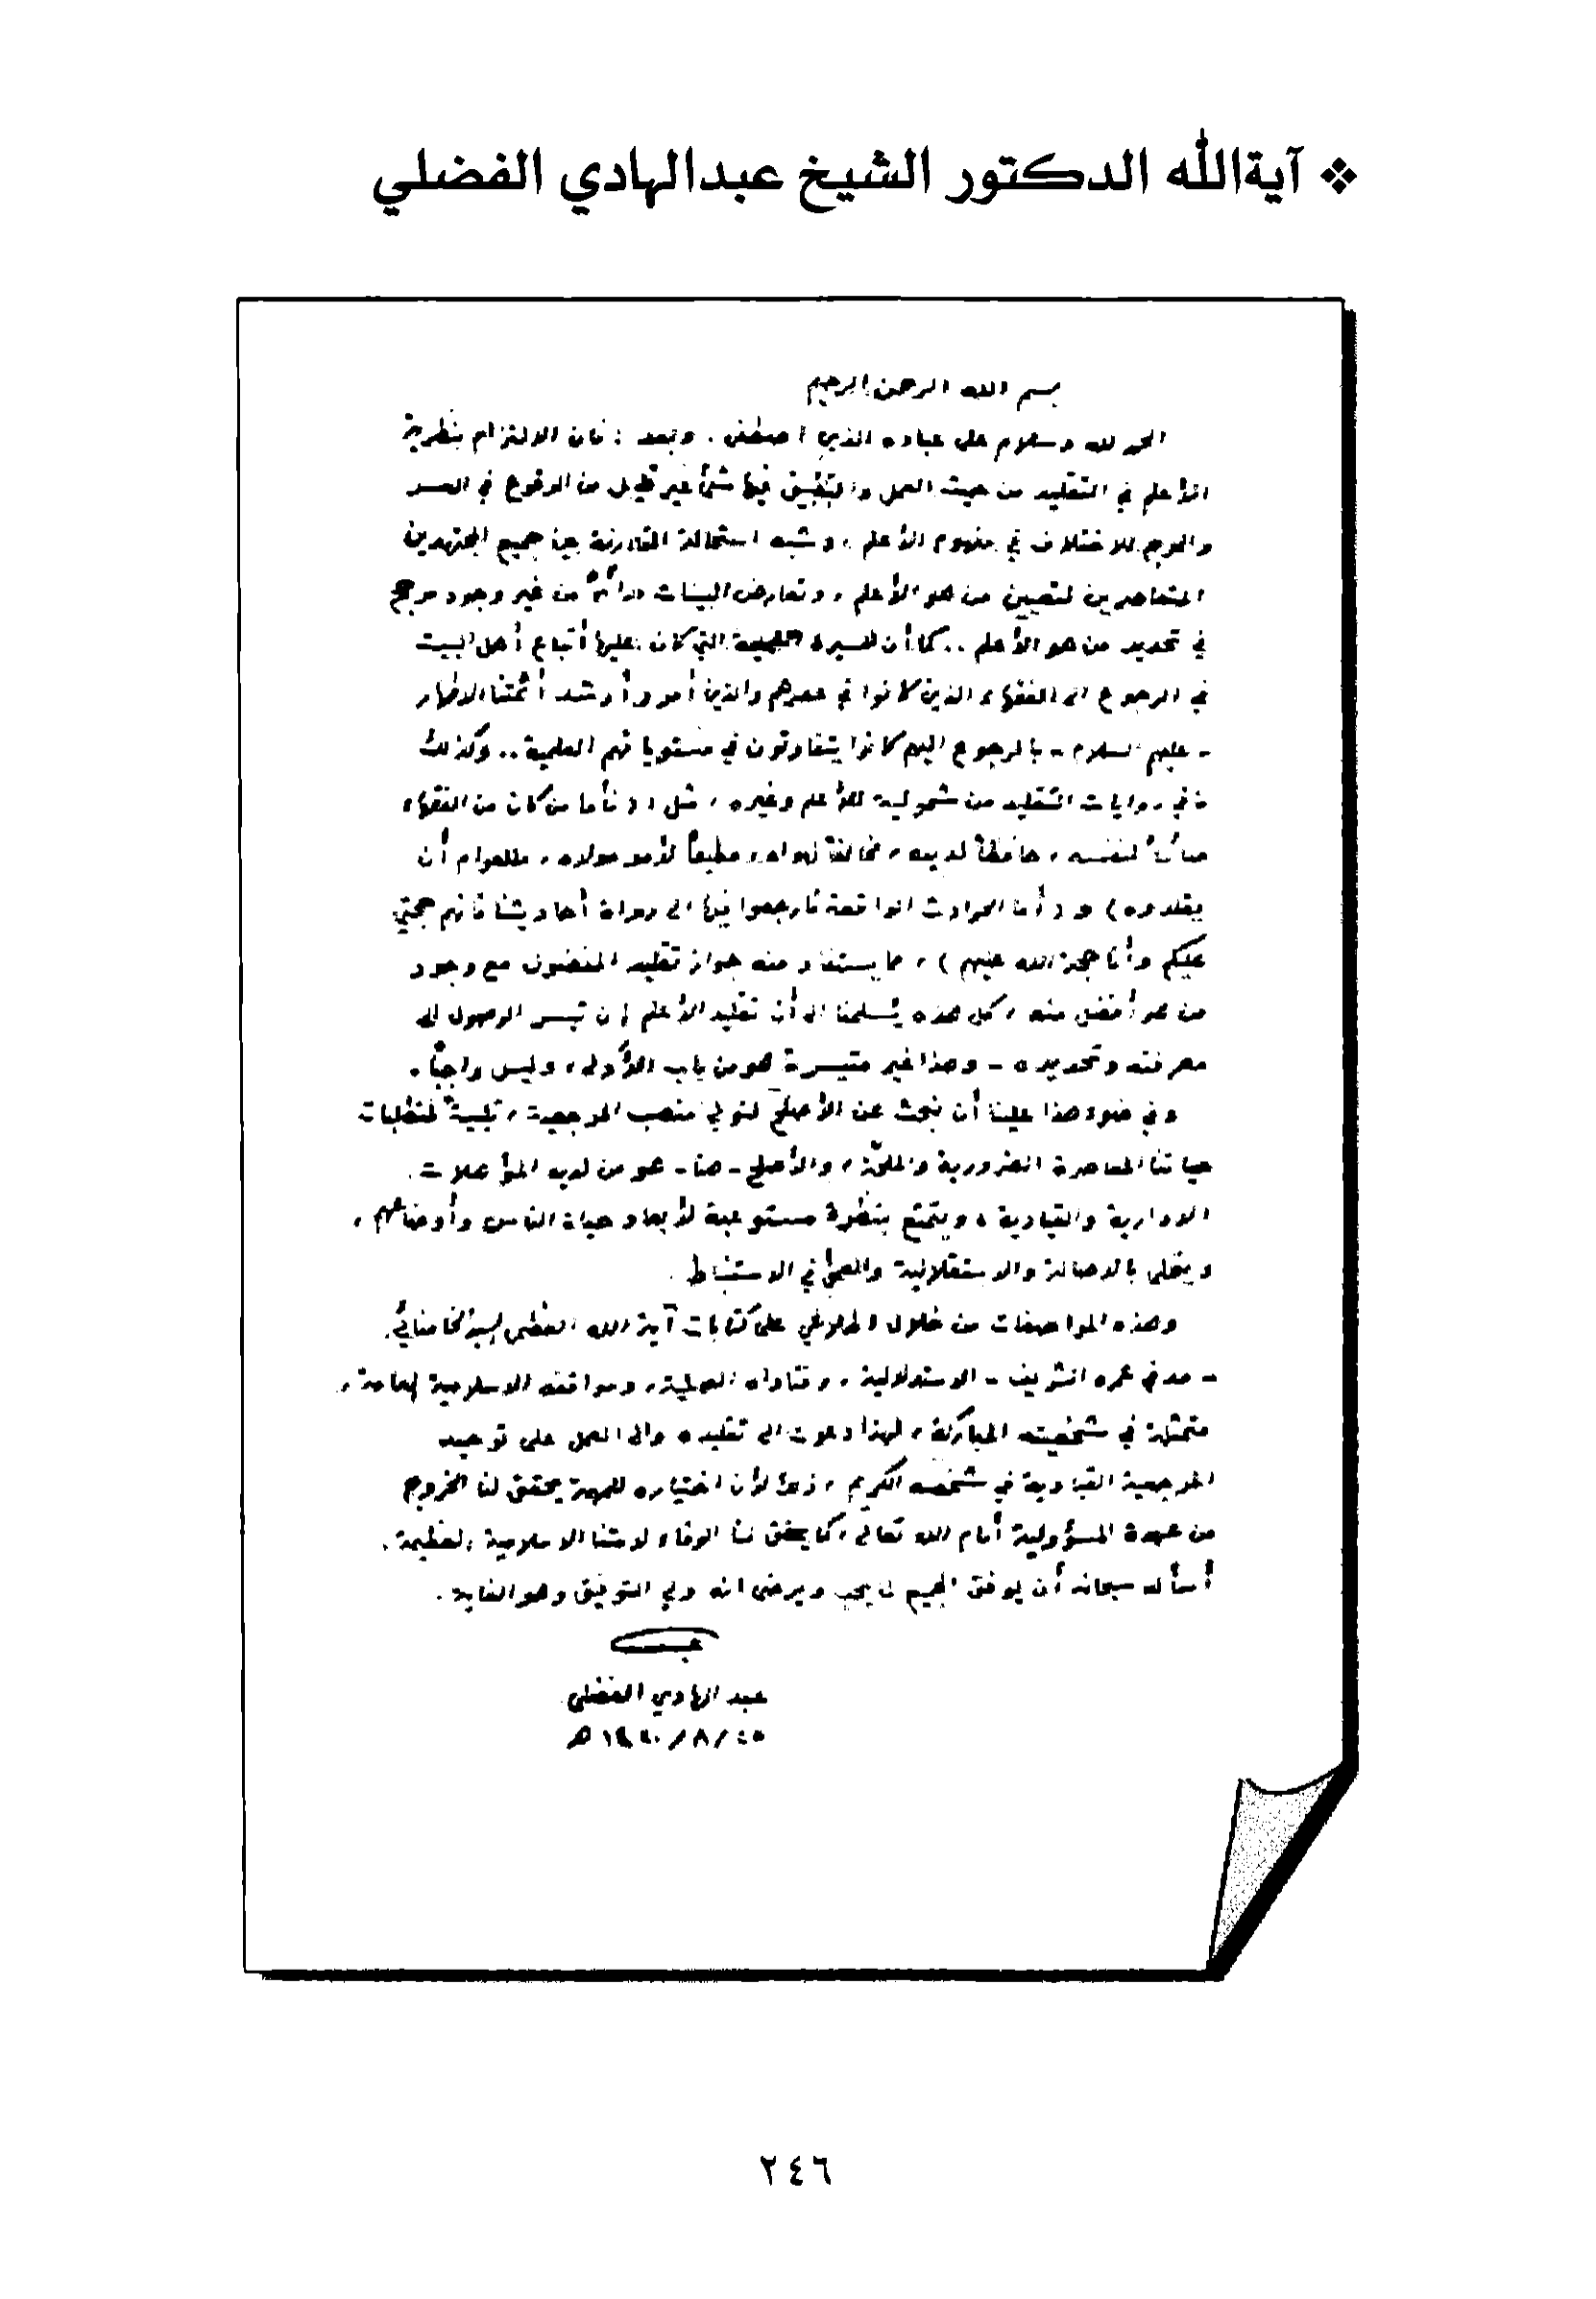 ❖ آيةالله الدكتور الشيخ عبدالهادي الفضلي
بسم الله الرحمن الرحيم
الحمد لله وسلام على عباده الذين اصطفى . وبعد : فان الالتزام بنظرية
الأعلم في التقليد من حيث العمل والتطبيق فيها شيء غير قليل من الوقوع في العسر
والحرج للاختلاف في مفهوم الأعلم ، وشبه استحالة المقارنة بين جميع المجتهدين
المتعاصرين لتعيين من هو الأعلم ، وتعارض البينات دائماً من غير وجود مرجح
في تحديد من هو الأعلم .. كما أن السيرة التي كان عليها أتباع أهل البيت
في الرجوع الى الفقهاء الذين كانوا في عصرهم والذين أمر وأرشد أئمتنا الاطهار
- عليهم السلام - بالرجوع اليهم كانوا يتفاوتون في مستوياتهم العلمية .. وكذلك
ما في روايات التقليد من شمولية للأعلم وغيره ، مثل : ( فأما من كان من الفقهاء
صائناً لنفسه ، حافظاً لدينه ، مخالفاً لهواه ، مطيعاً لأمر مولاه ، فللعوام أن
يقلدوه ) و ( أما الحوادث الواقعة فارجعوا فيها الى رواة أحاديثنا فانهم حجتي
عليكم وأنا حجة الله عليهم ) ، مما يستفاد منه جواز تقليد المفضول مع وجود
من هو أفضل منه ، كل هذه يسلمنا الى أن تقليد الأعلم إن تيسر الوصول الى
معرفته وتحديده - وهذا غير متيسر - هو من باب الأولى ، وليس واجباً .
وفي ضوء هذا علينا أن نبحث عن الأصلح لتولي منصب المرجعية ، تلبيةً لمتطلبات
حياتنا المعاصرة الضرورية والملحّة ، والأصلح - هنا - هو من لديه المؤهلات
الادارية والقيادية ، ويتمتع بنظرة مستوعبة لأبعاد حياة الناس وأوضاعهم ،
ويتحلى بالاصالة والاستقلالية والعمق في الاستنباط .
وهذه المواصفات من خلال اطلاعي على كتابات آية الله العظمى السيد الخامنائي
- مد في عمره الشريف - الاستدلالية ، وفتاواه العملية ، ومواقفه الاسلامية العامة ،
متمثلة في شخصيته المباركة ، لهذا دعوت الى تقليده والى العمل على توحيد
المرجعية القيادية في شخصه الكريم ، ذلك لأن اختياره للمهمة يحقق لنا الخروج
من عهدة المسؤولية أمام الله تعالى ، كما يحقق لنا الوفاء لامتنا الاسلامية العظيمة .
أسأله سبحانه أن يوفق الجميع لما يحب ويرضى انه ولي التوفيق وهو الغاية .
عبد الهادي الفضلي
٢٤٦